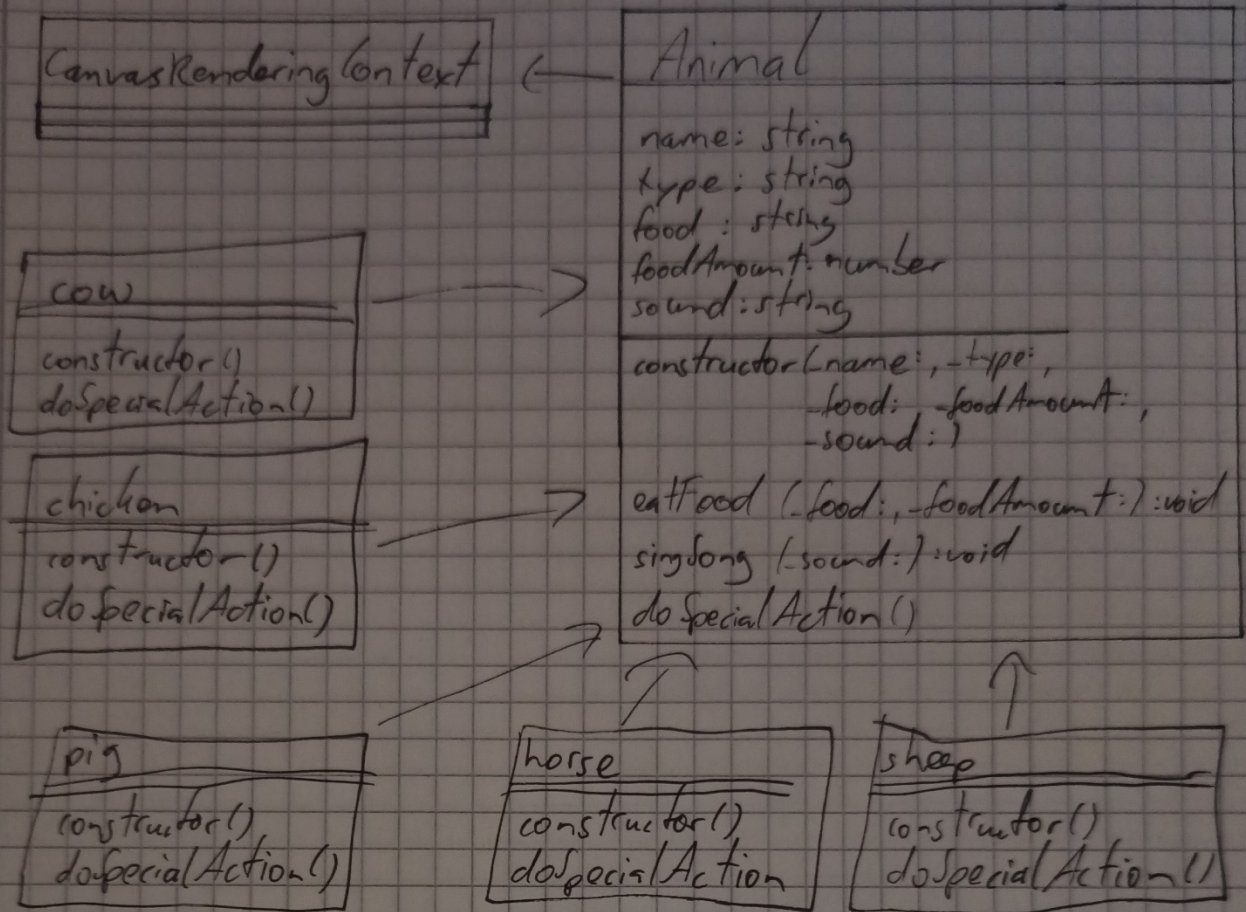 CanvasRenderingContext
Animal
name: string
type: string
food: string
foodAmount: number
sound: string
constructor(_name:, _type:,
_food:, _foodAmount:,
_sound:)
eatFood (_food:, _foodAmount:) :void
singSong (_sound:) :void
doSpecialAction()
cow
constructor()
doSpecialAction()
chicken
constructor()
doSpecialAction()
pig
constructor()
doSpecialAction()
horse
constructor()
doSpecialAction
sheep
constructor()
doSpecialAction()